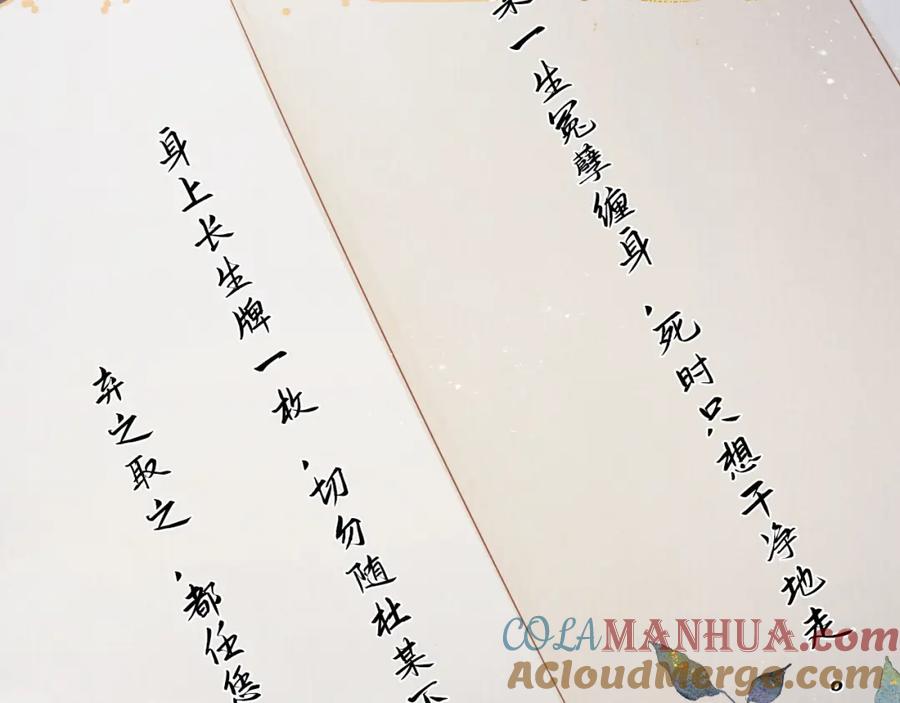 某一生冤孽缠身，死时只想干净地走。
身上长生牌一枚，切勿随杜某下
弃之取之，都任恁
COLAMANHUA.com
ACloudMerge.com